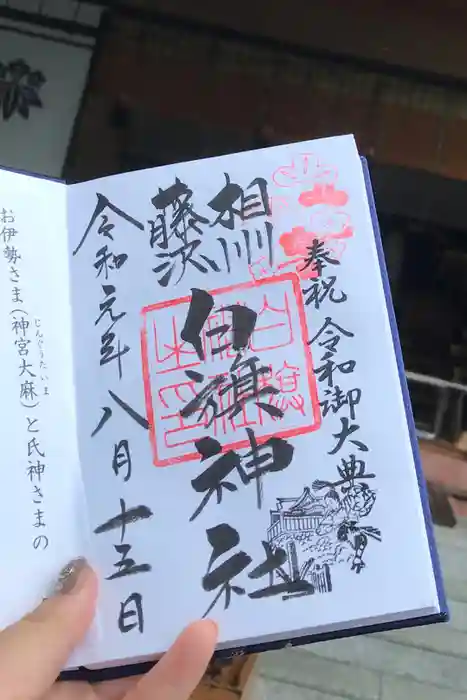 奉祝 令和御大典
相州
藤沢
白旗神社
令和元年八月十五日
お伊勢さま(神宮大麻)と氏神さまの
じんぐうたいま